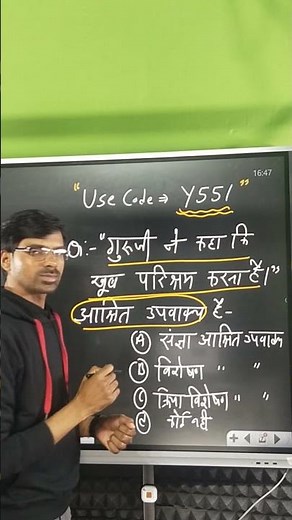 16:47
"Use Code ⇒ Y551"
Q:- "गुरुजी ने कहा कि
खूब परिश्रम करना है।"
आश्रित उपवाक्य है-
(A) संज्ञा आश्रित उपवाक्य
(B) विशेषण " "
(C) क्रिया विशेषण " "
कोई नही